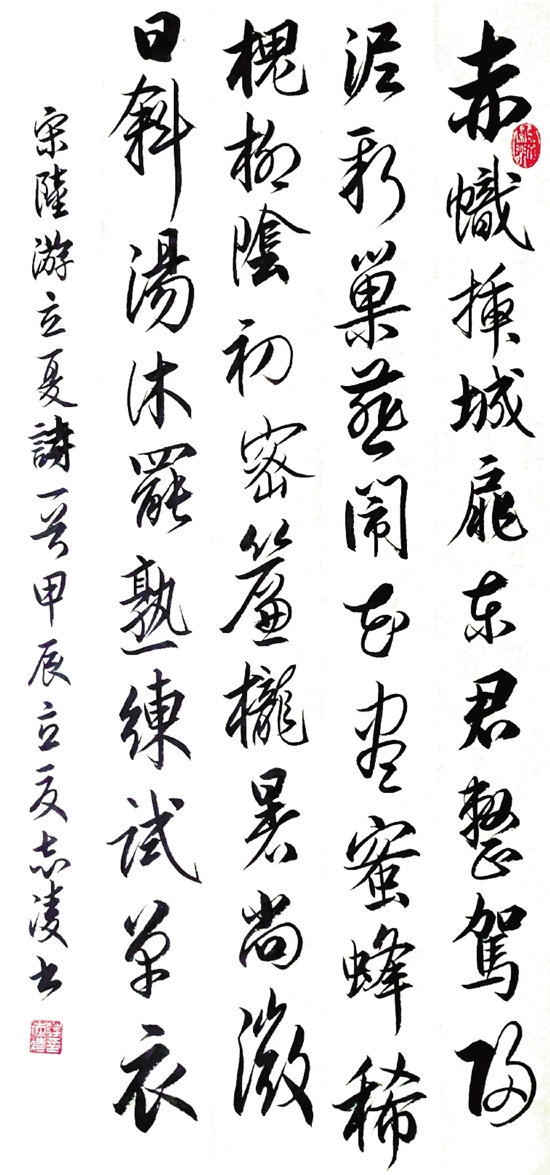 赤幟插城扉東君整駕歸
泥新巢燕鬧花盡蜜蜂稀
槐柳陰初密簾櫳暑尚微
日斜湯沐罷熟練試單衣
宋陸游立夏詩一首甲辰立夏志凌書